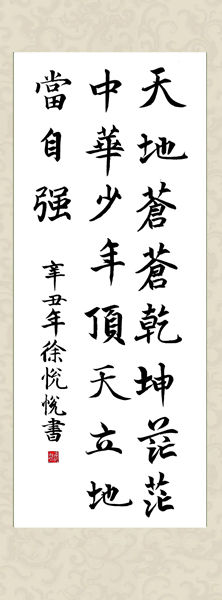 天地蒼蒼乾坤茫茫
中華少年頂天立地
當自强
辛丑年徐悅悅書